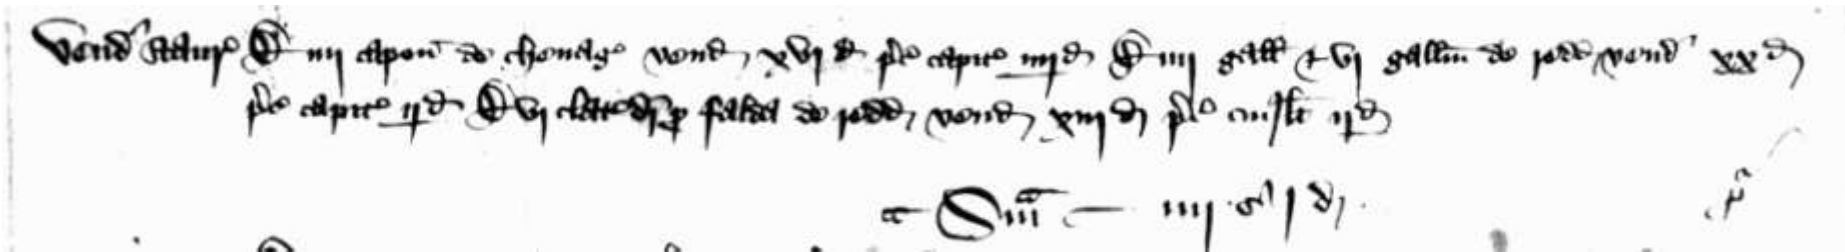 Vend' staur' Et iiij capon' de chevag' vend' xvj d' p'c' capit' iiij d' Et iiij gall' et vj gallin' de redd' vend' xx d'
p'c' capit' ij d' Et vj clat' p' falda de redd' vend' xiij d' p'c' cuiuslt' ij d'
Sma iiij s' j d'